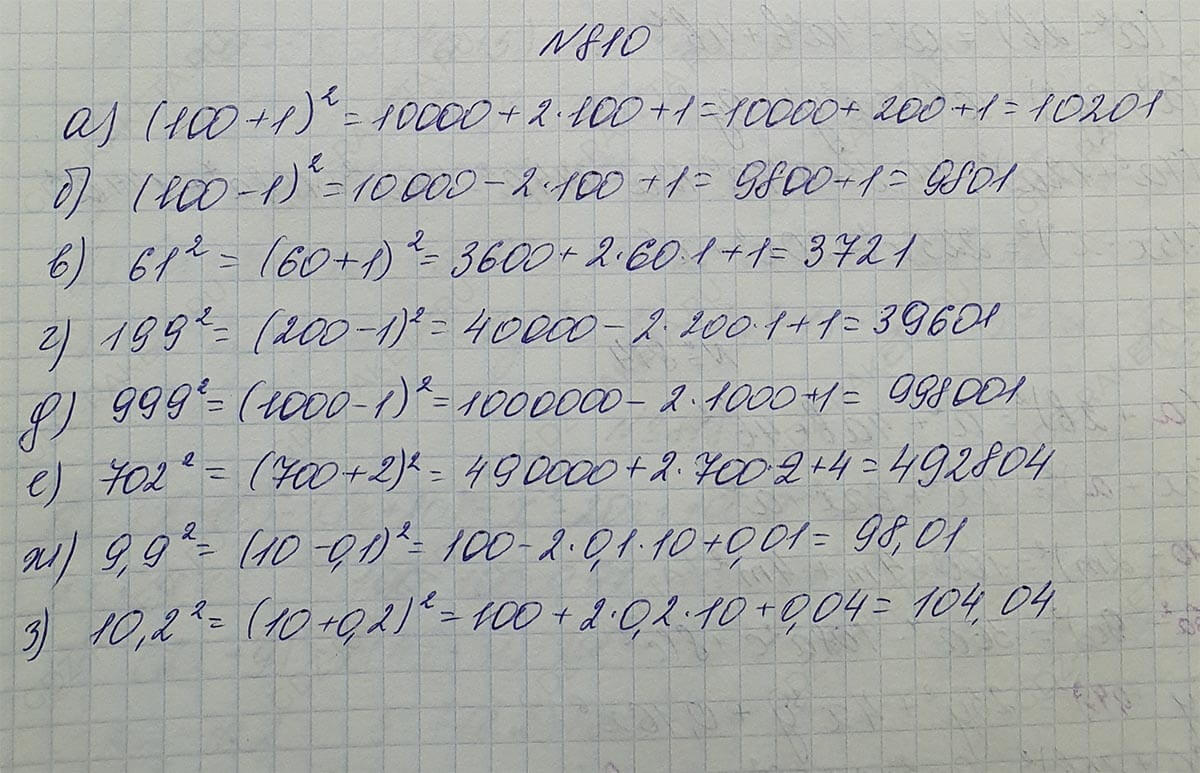 №810
а) (100+1)² = 10000+2·100+1=10000+200+1=10201
б) (100-1)²=10000-2·100+1= 9800+1= 9801
в) 61²= (60+1)²= 3600+2·60·1+1=3721
г) 199²= (200-1)²= 40000-2·200·1+1=39601
д) 999²=(1000-1)²=1000000-2·1000+1= 998001
е) 702²= (700+2)²= 490000+2·700·2+4=492804
ж) 9,9²= (10-0,1)²= 100-2·0,1·10+0,01= 98,01
з) 10,2²= (10+0,2)²=100+2·0,2·10+0,04= 104,04